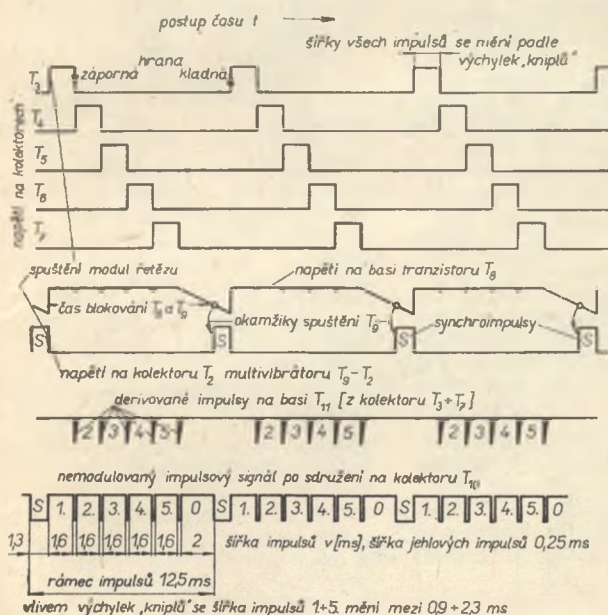 postup času t
šířky všech impulsů se mění podle
výchylek „kniplů"
hrana
záporná kladná
T3
T4
T5
T6
T7
napětí na kolektorech
spuštění modul řetězu
napětí na basi tranzistoru T8
čas blokování T8 a T9
okamžiky spuštění T9
synchroimpulsy
S S S S
napětí na kolektoru T2 multivibrátoru T9 - T2
derivované impulsy na basi T11 [z kolektoru T3÷T7]
2 3 4 5 2 3 4 5 2 3 4 5
nemodulovaný impulsový signál po sdružení na kolektoru
S 1. 2. 3. 4. 5. 0 S 1. 2. 3. 4. 5. 0 S 1. 2. 3. 4. 5. 0
1,3 1,6 1,6 1,6 1,6 1,6 2 šířka impulsů v [ms], šířka jehlových impulsů 0,25 ms
rámec impulsů 12,5 ms
vlivem výchylek „kniplů" se šířka impulsů 1÷5. mění mezi 0,9 ÷ 2,3 ms